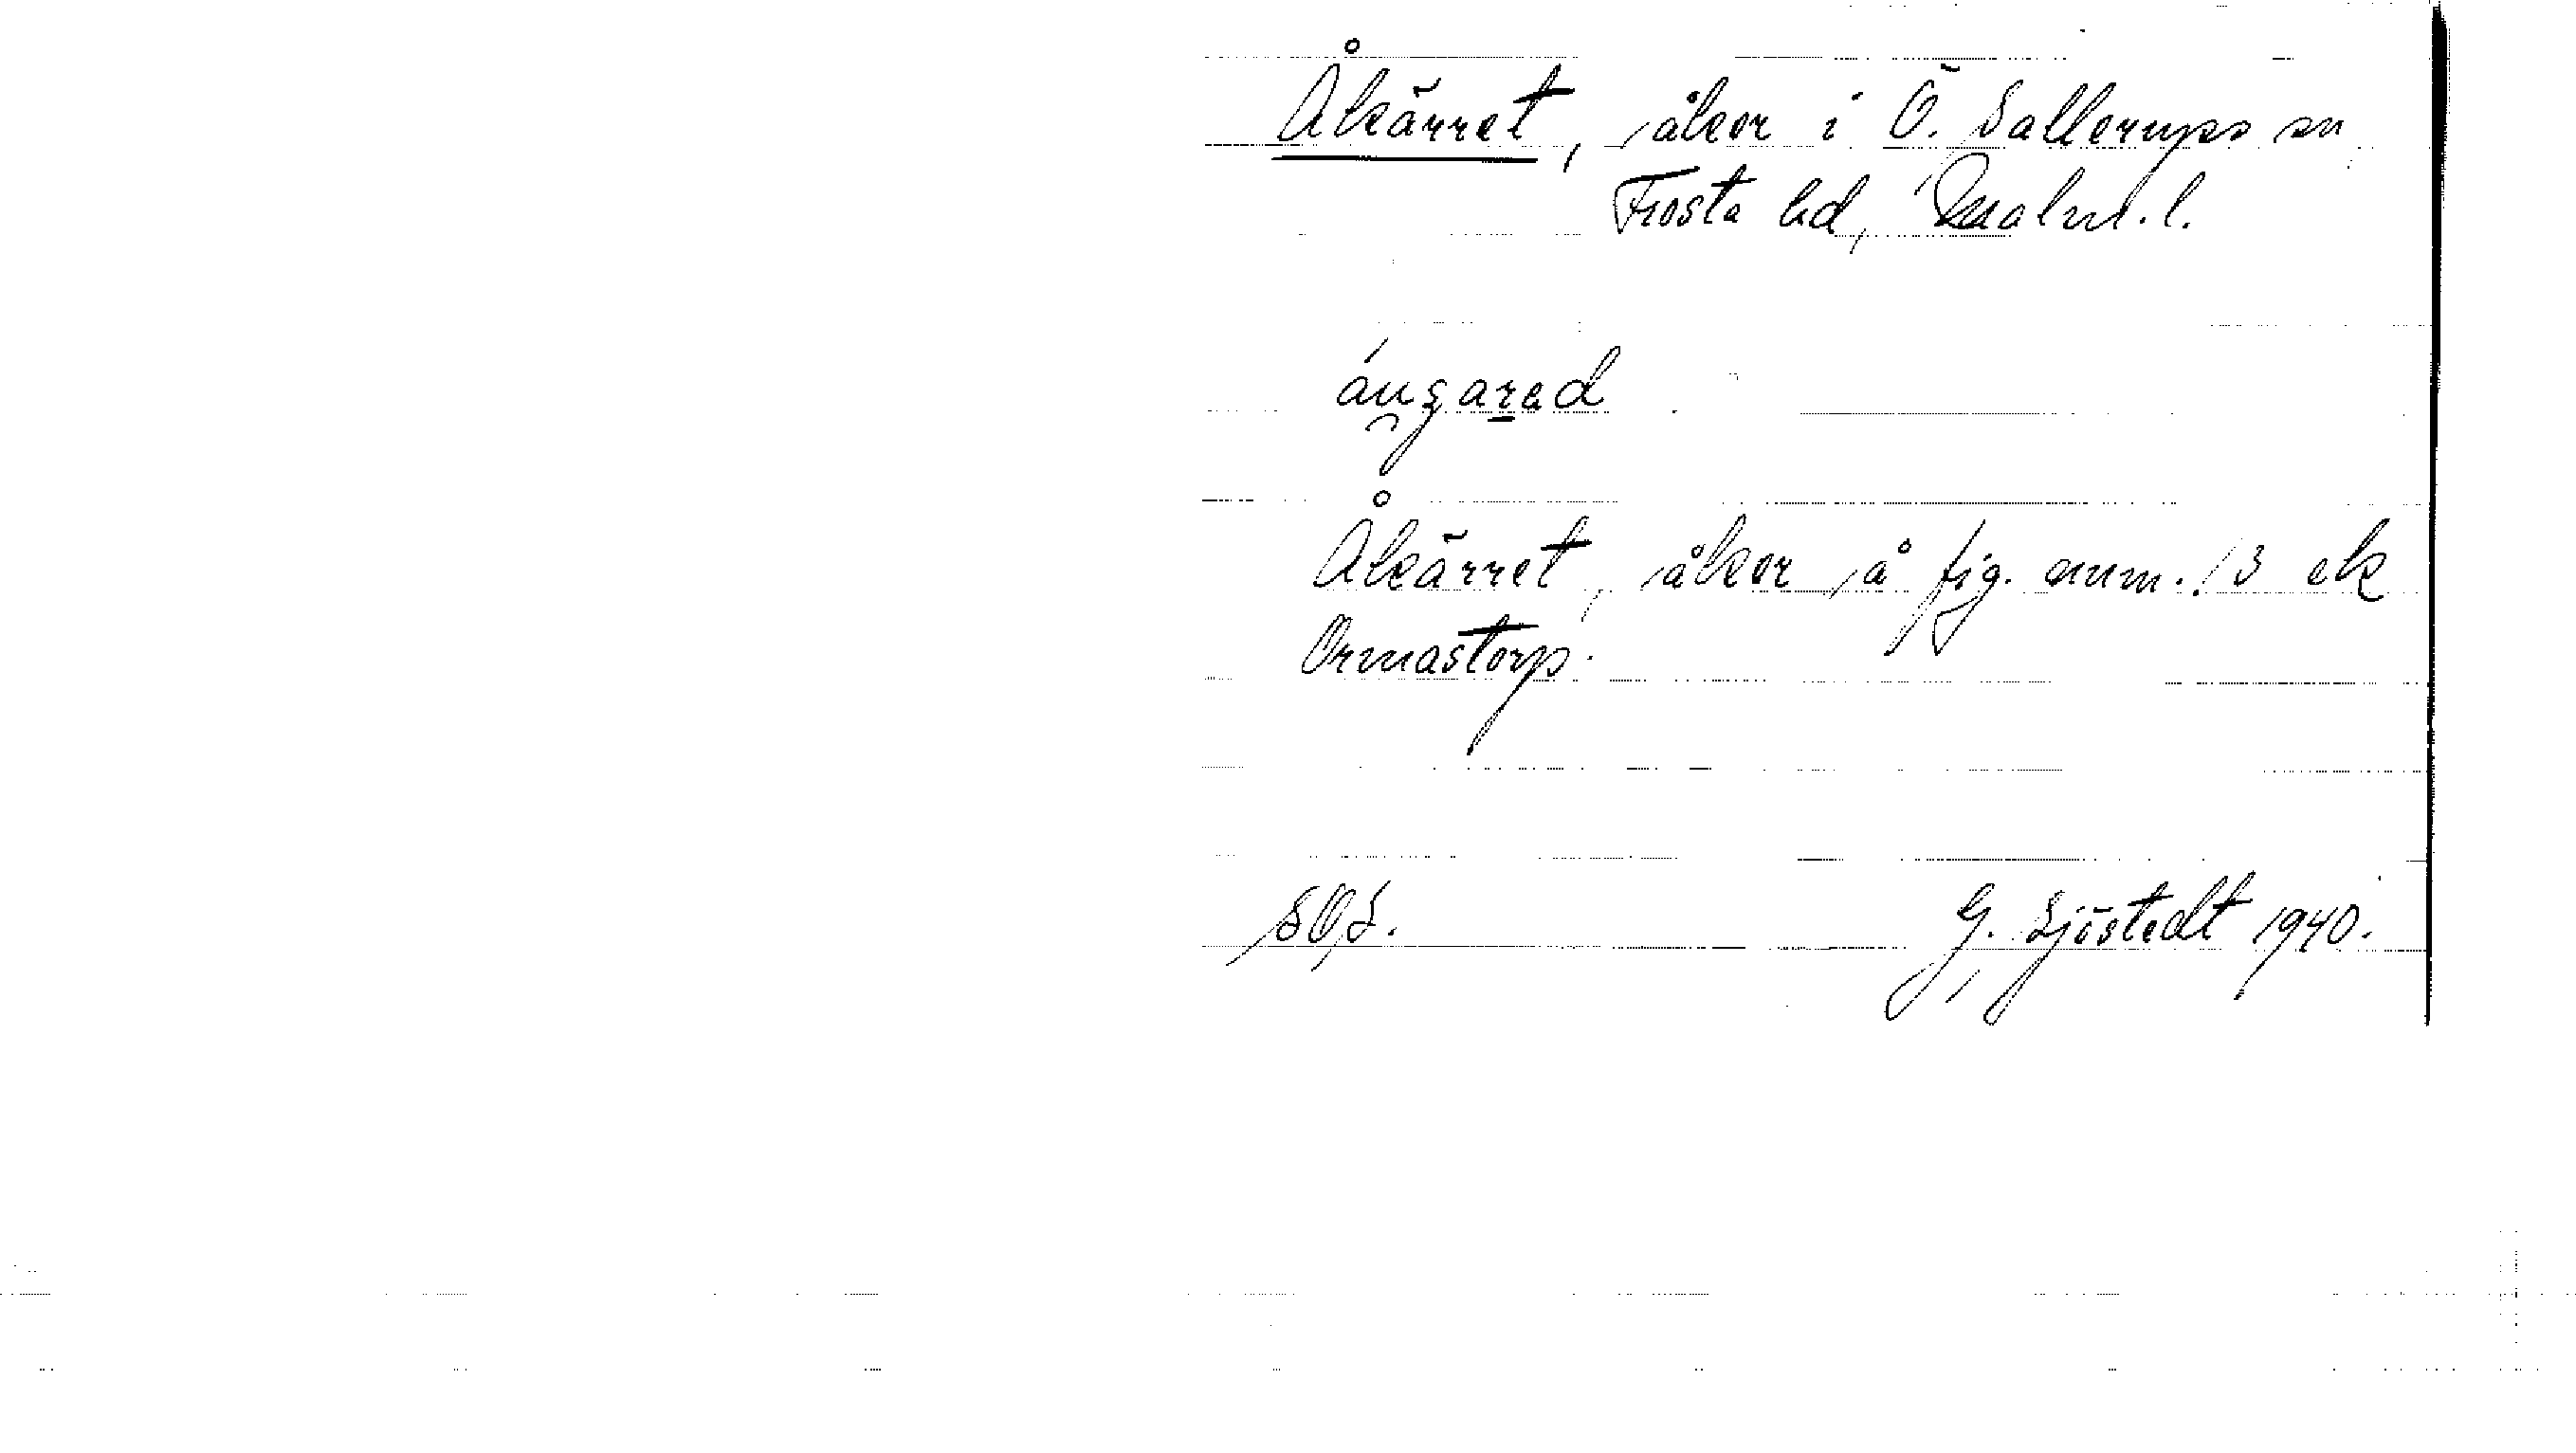 Åkärret, åker i Ö. Sallerups sn
Frosta hd, Malm. l.
Åkärret, åker å fig. num. 13 ek
Ormastorp.
SOS.
G. Sjöstedt 1940.